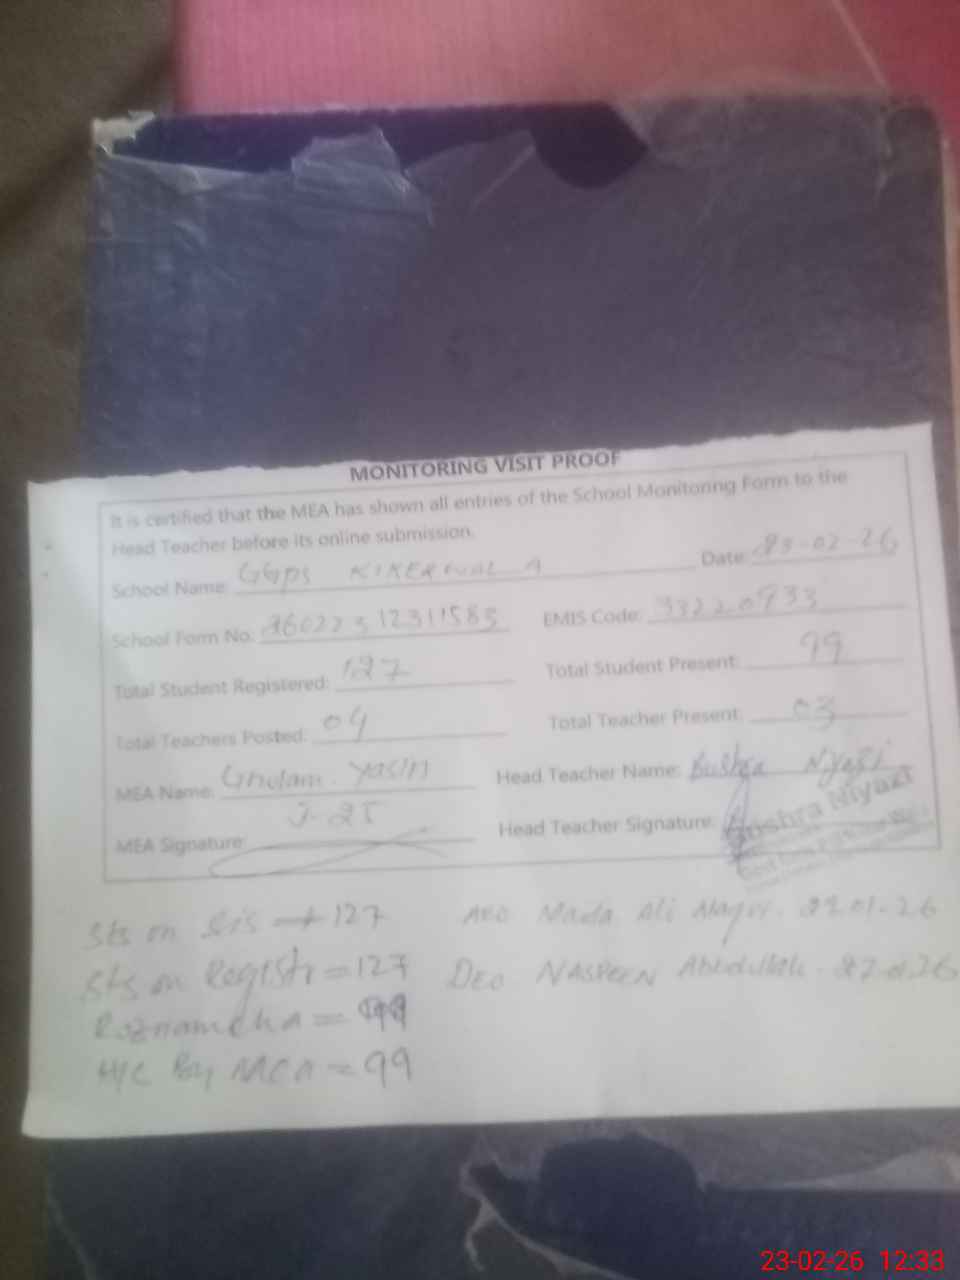 MONITORING VISIT PROOF
It is certified that the MEA has shown all entries of the School Monitoring Form to the
Head Teacher before its online submission.
School Name: GGPS KIKERWAL A Date: 23-02-26
School Form No: EMIS Code: 33220933
Total Student Registered: 127 Total Student Present: 99
Total Teachers Posted: 04 Total Teacher Present: 03
MEA Name: Ghulam Yasin Head Teacher Name: Bushra Nyazi
MEA Signature: J-25 Head Teacher Signature:
Bushra Niyazi
Sts on Sis → 127 AEO Ali 01-26
Sts on Registr = 127 DEO NASREEN Abdullah 27.01.26
Roznamcha = 99
H/C By MEA = 99
23-02-26 12:33